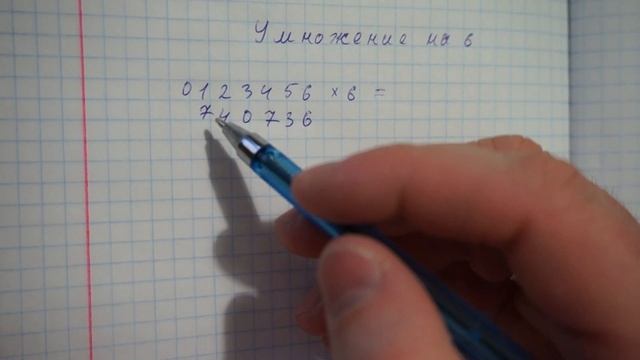 Умножение на 6
0123456 × 6 =
740736